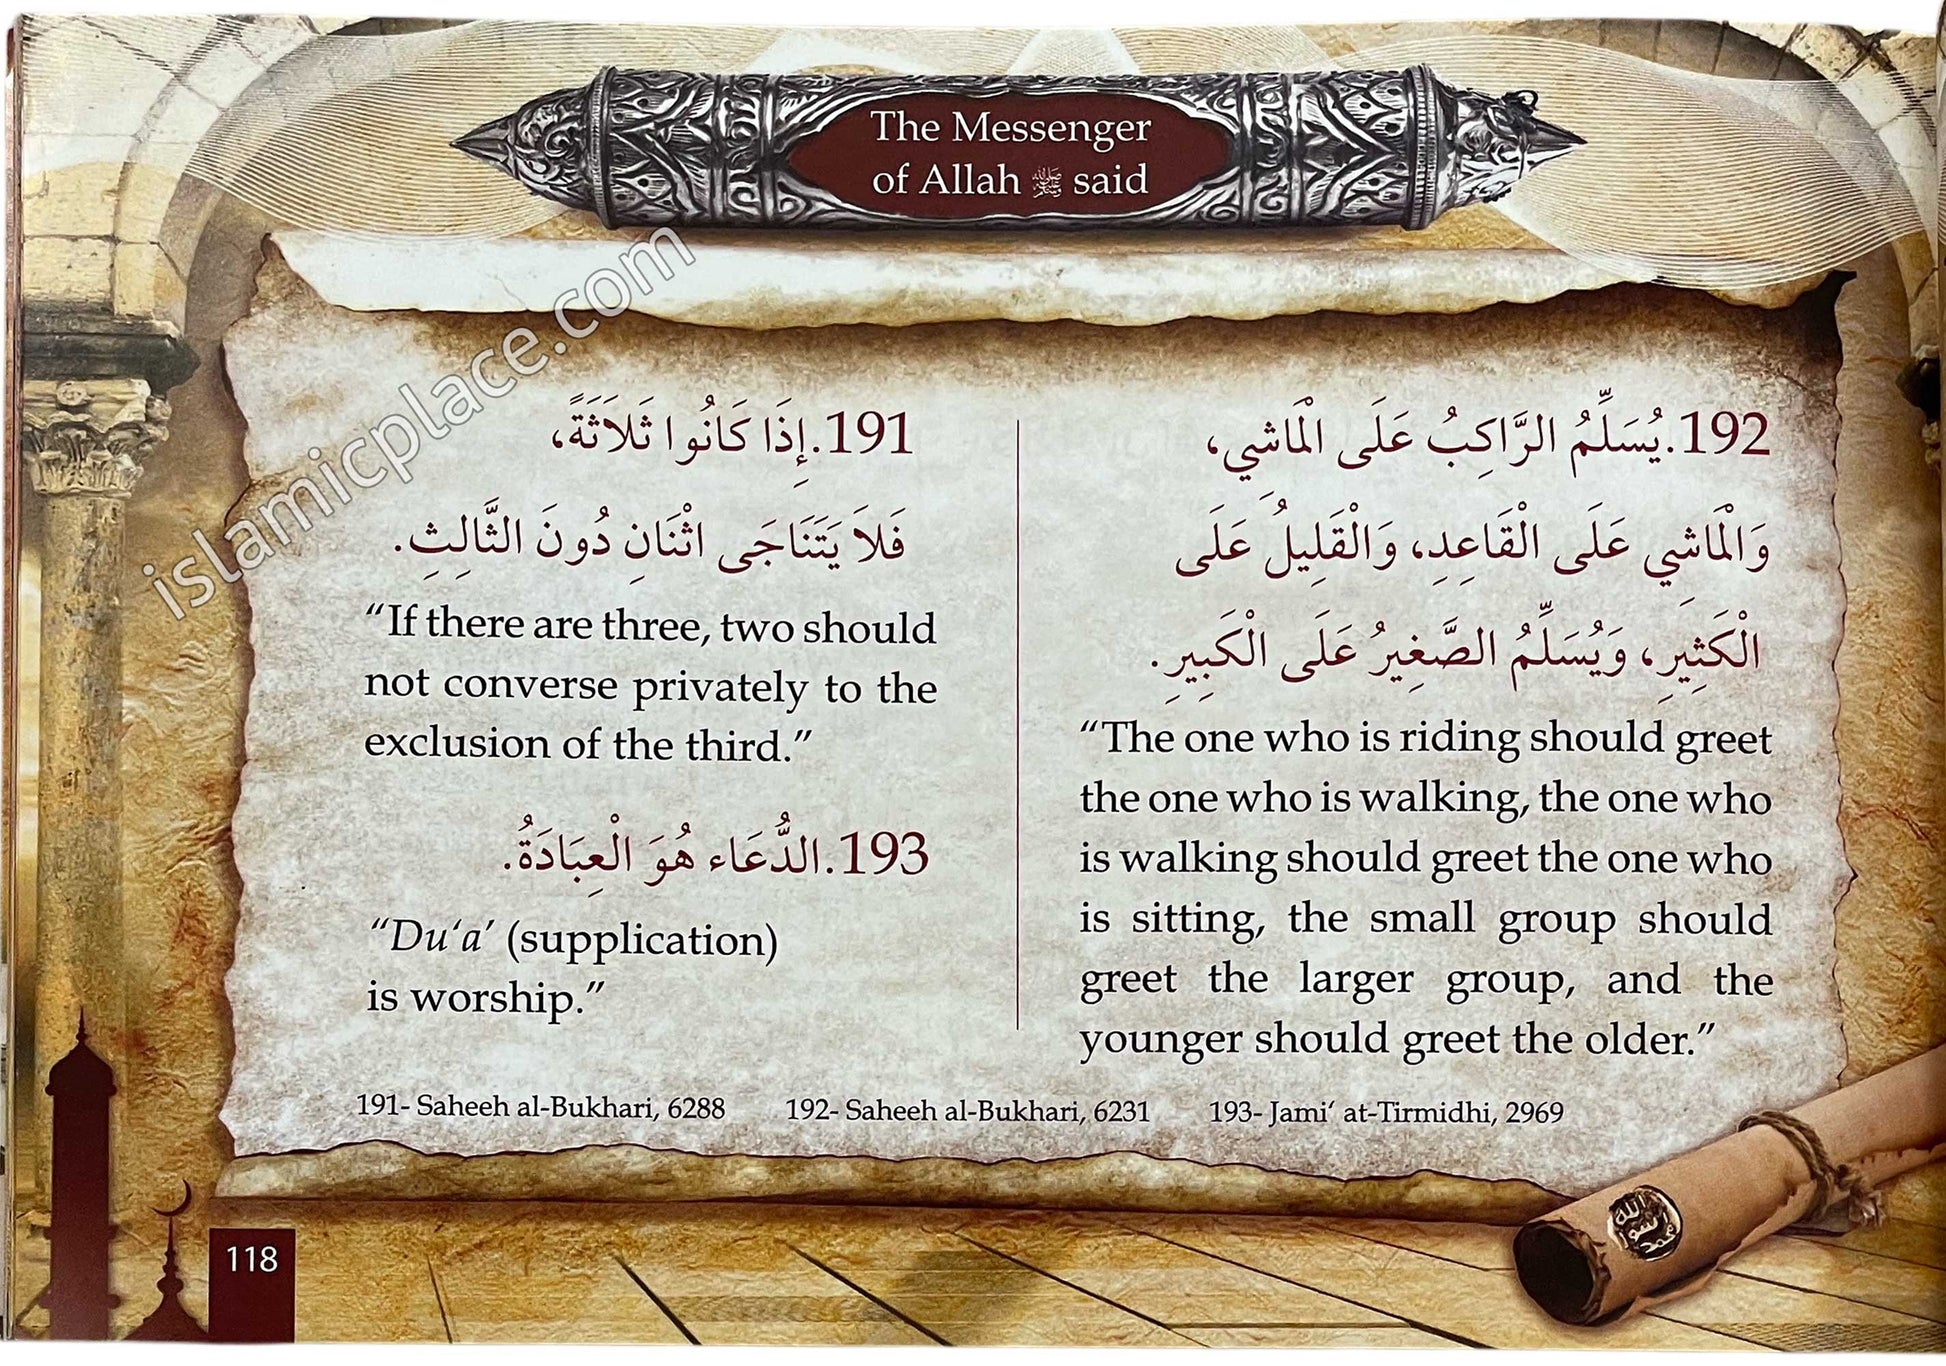 The Messenger
of Allah ﷺ said
191. إِذَا كَانُوا ثَلَاثَةً،
فَلَا يَتَنَاجَى اثْنَانِ دُونَ الثَّالِثِ.
“If there are three, two should
not converse privately to the
exclusion of the third.”
193. الدُّعَاء هُوَ الْعِبَادَةُ.
“Du‘a’ (supplication)
is worship.”
192. يُسَلِّمُ الرَّاكِبُ عَلَى الْمَاشِي،
وَالْمَاشِي عَلَى الْقَاعِدِ، وَالْقَلِيلُ عَلَى
الْكَثِيرِ، وَيُسَلِّمُ الصَّغِيرُ عَلَى الْكَبِيرِ.
“The one who is riding should greet
the one who is walking, the one who
is walking should greet the one who
is sitting, the small group should
greet the larger group, and the
younger should greet the older.”
191- Saheeh al-Bukhari, 6288 192- Saheeh al-Bukhari, 6231 193- Jami‘ at-Tirmidhi, 2969
118
الله
رسول
محمد
islamicplace.com